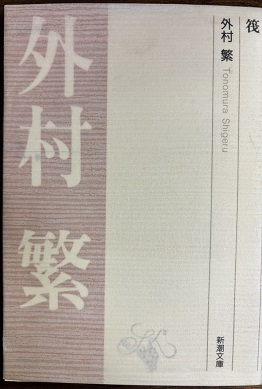 筏
外村 繁 Tonomura Shigeru
新潮文庫
外村 繁